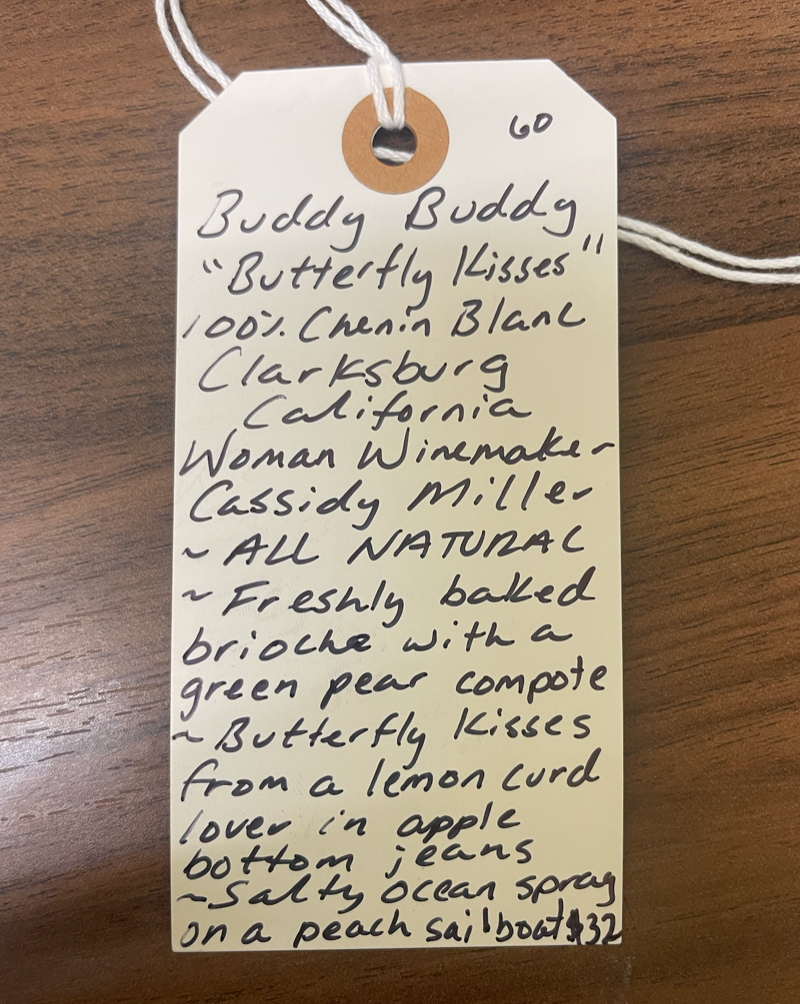 60
Buddy Buddy
"Butterfly Kisses"
100% Chenin Blanc
Clarksburg
California
Woman Winemaker
Cassidy Miller
~ ALL NATURAL
~ Freshly baked
brioche with a
green pear compote
~ Butterfly Kisses
from a lemon curd
lover in apple
bottom jeans
~ Salty ocean spray
on a peach sailboat $32